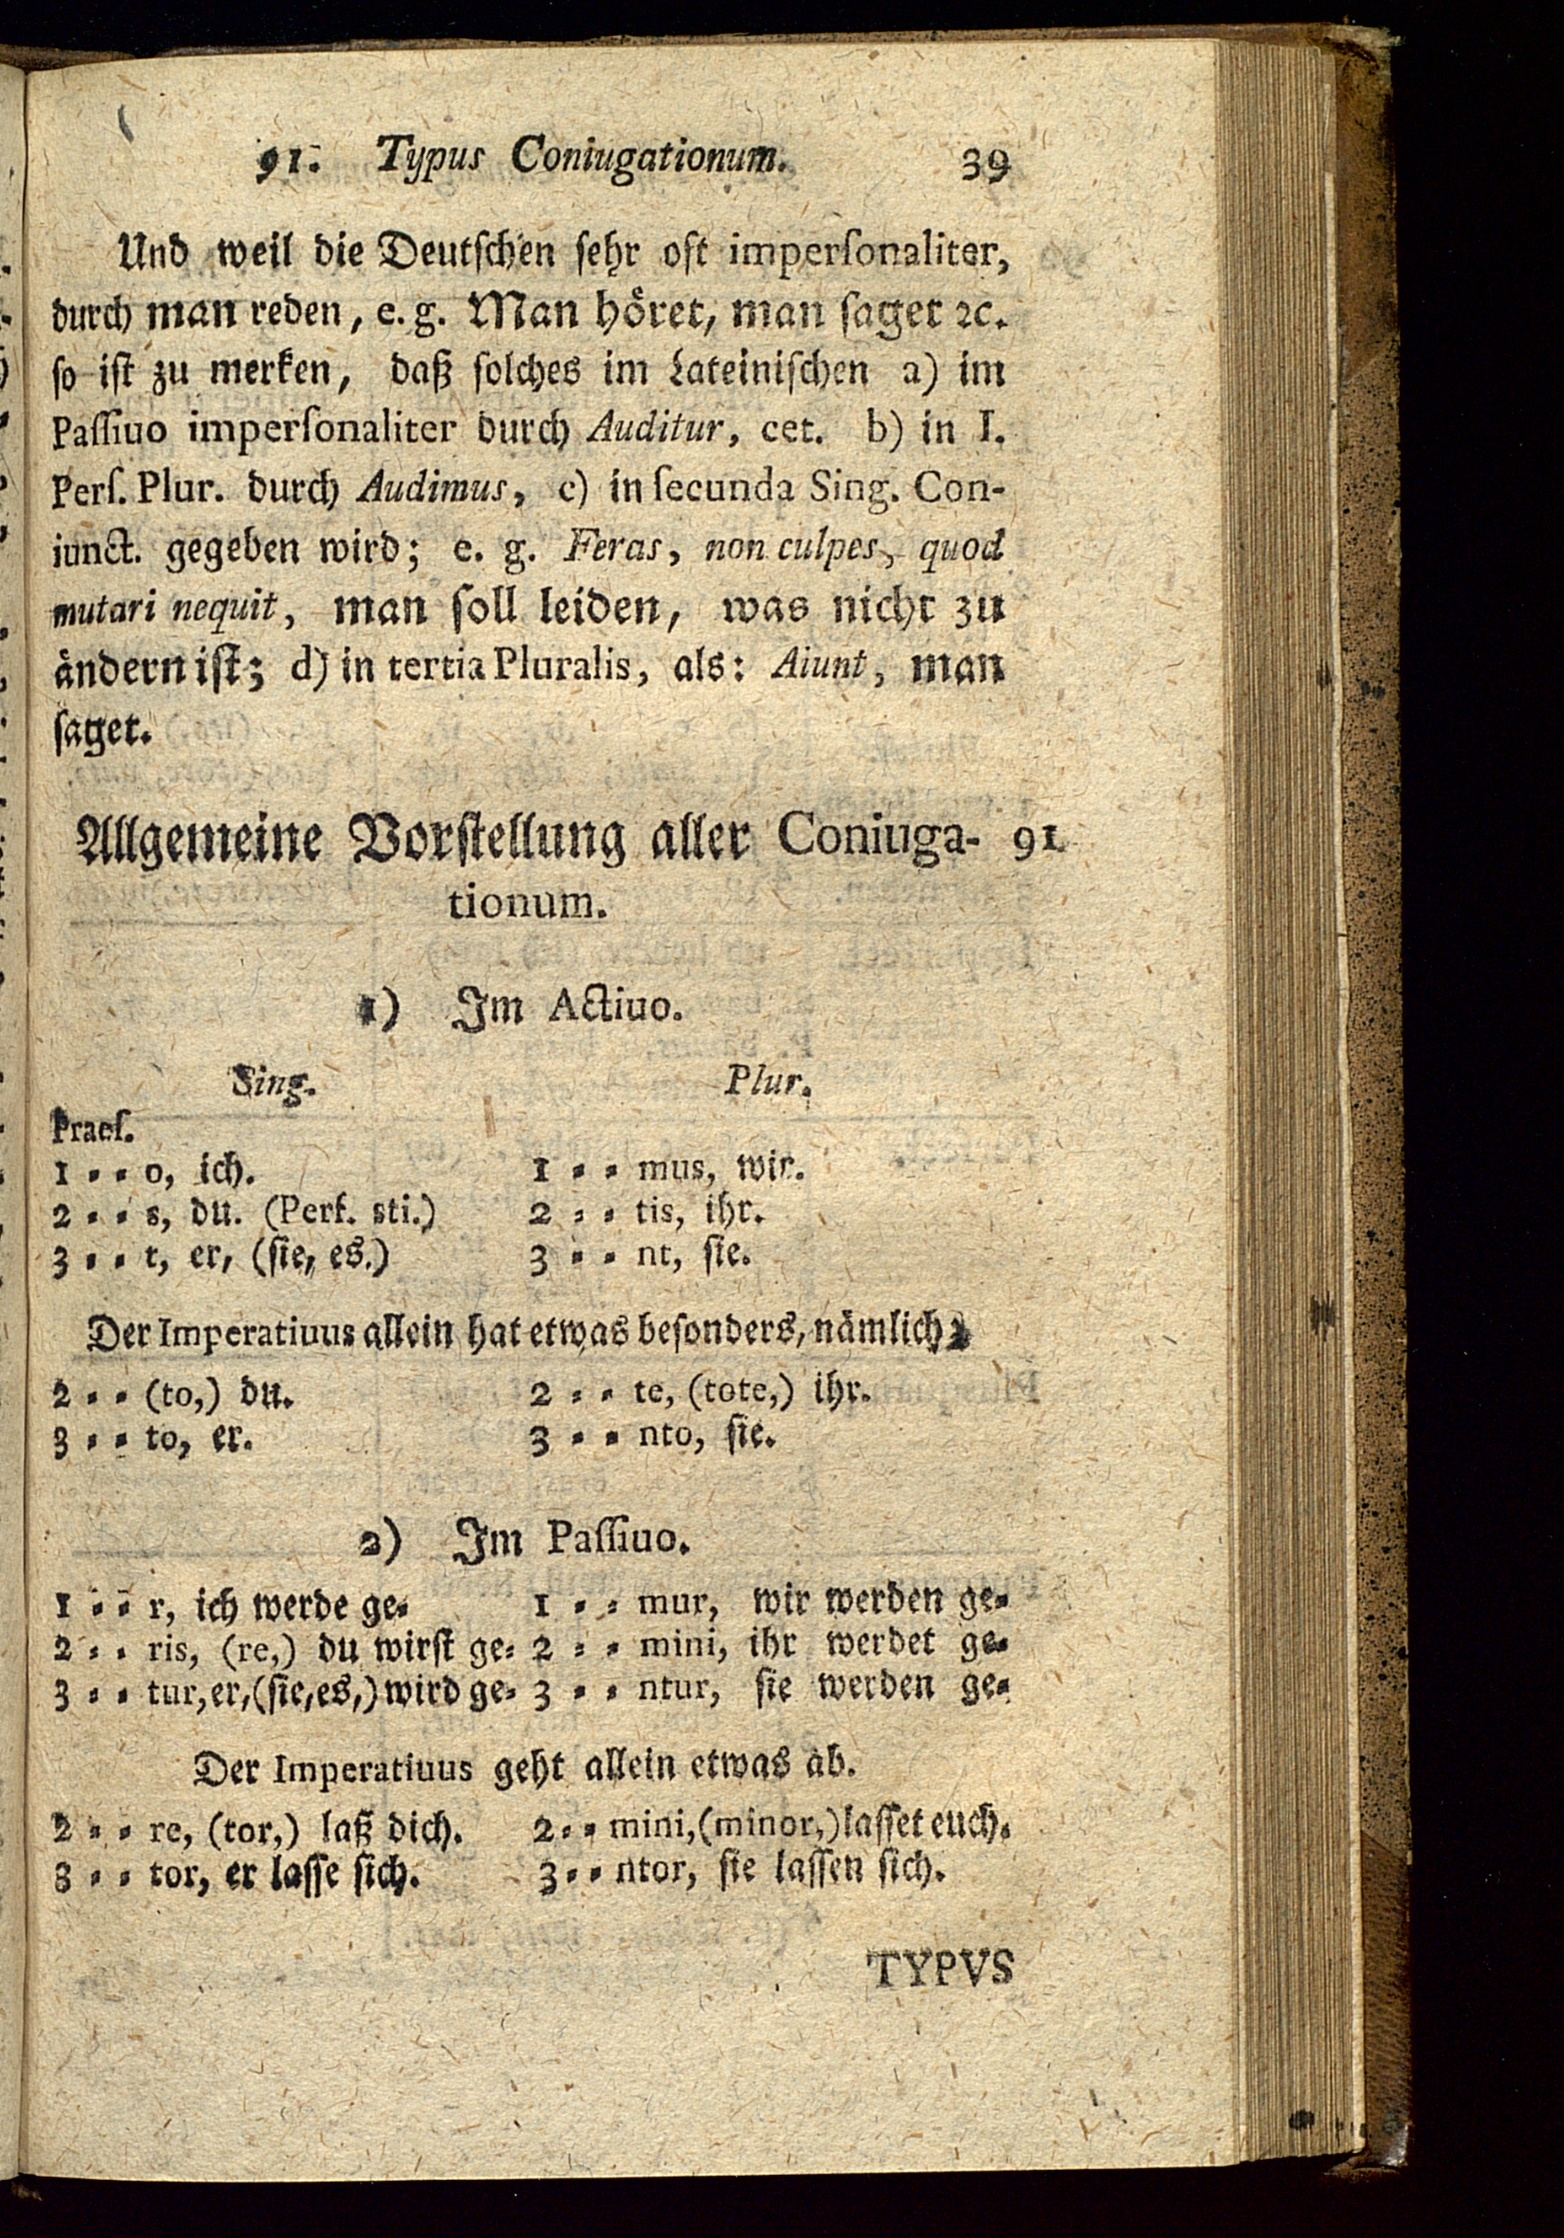 91. Typus Coniugationum. 39
Und weil die Deutschen sehr oft impersonaliter,
durch man reden, e. g. Man höret, man saget ꝛc.
so ist zu merken, daß solches im Lateinischen a) im
Passiuo impersonaliter durch Auditur, cet. b) in I.
Pers. Plur. durch Audimus, c) in secunda Sing. Con-
iunct. gegeben wird; e. g. Feras, non culpes, quod
mutari nequit, man soll leiden, was nicht zu
ändern ist; d) in tertia Pluralis, als: Aiunt, man
saget.
Allgemeine Vorstellung aller Coniuga- 91
tionum.
1) Im Actiuo.
Sing. Plur.
Praes.
1 = = o, ich. 1 = = mus, wir.
2 = = s, du. (Perf. sti.) 2 = = tis, ihr.
3 = = t, er, (sie, es.) 3 = = nt, sie.
Der Imperatiuus allein hat etwas besonders, nämlich:
2 = = (to,) du. 2 = = te, (tote,) ihr.
3 = = to, er. 3 = = nto, sie.
2) Im Passiuo.
1 = = r, ich werde ge= 1 = = mur, wir werden ge=
2 = = ris, (re,) du wirst ge= 2 = = mini, ihr werdet ge=
3 = = tur, er, (sie, es,) wird ge= 3 = = ntur, sie werden ge=
Der Imperatiuus geht allein etwas ab.
2 = = re, (tor,) laß dich. 2 = = mini, (minor,) lasset euch.
3 = = tor, er lasse sich. 3 = = ntor, sie lassen sich.
TYPVS